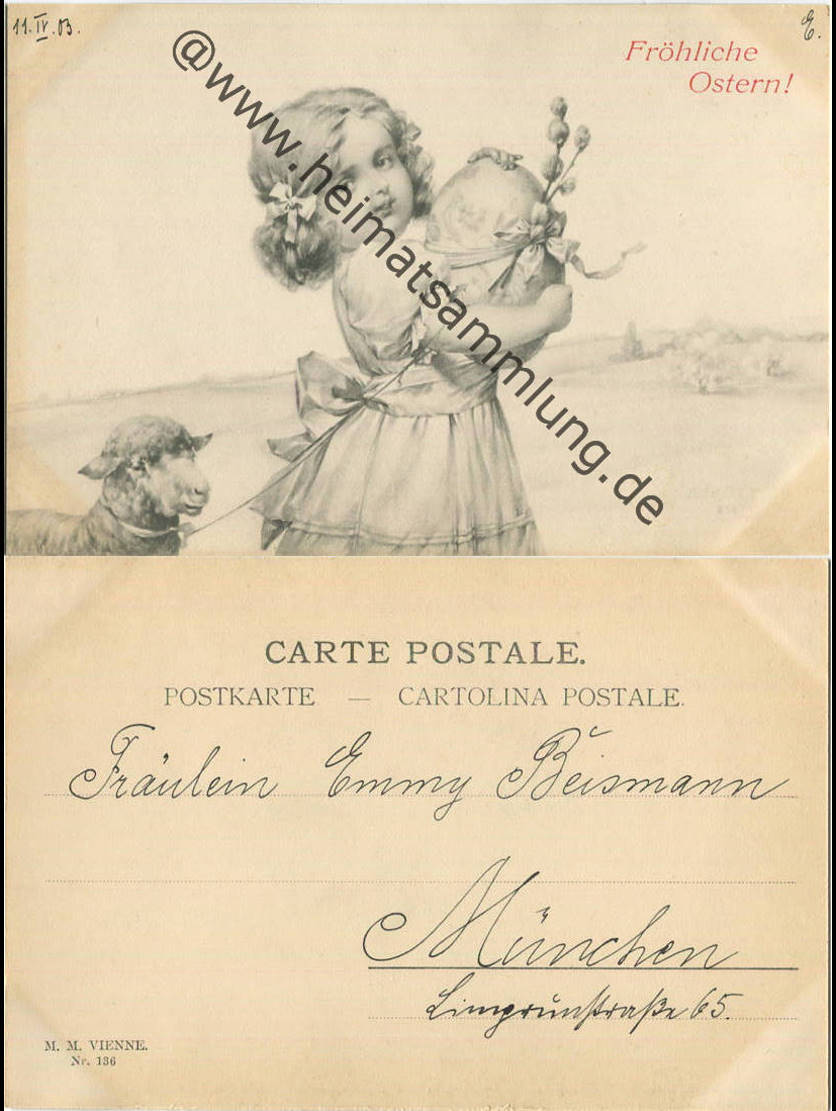 11.IV.03.
E.
Fröhliche
Ostern!
@www.heimatsammlung.de
CARTE POSTALE.
POSTKARTE — CARTOLINA POSTALE.
Fräulein Emmy Beismann
München
65.
M. M. VIENNE.
Nr. 136